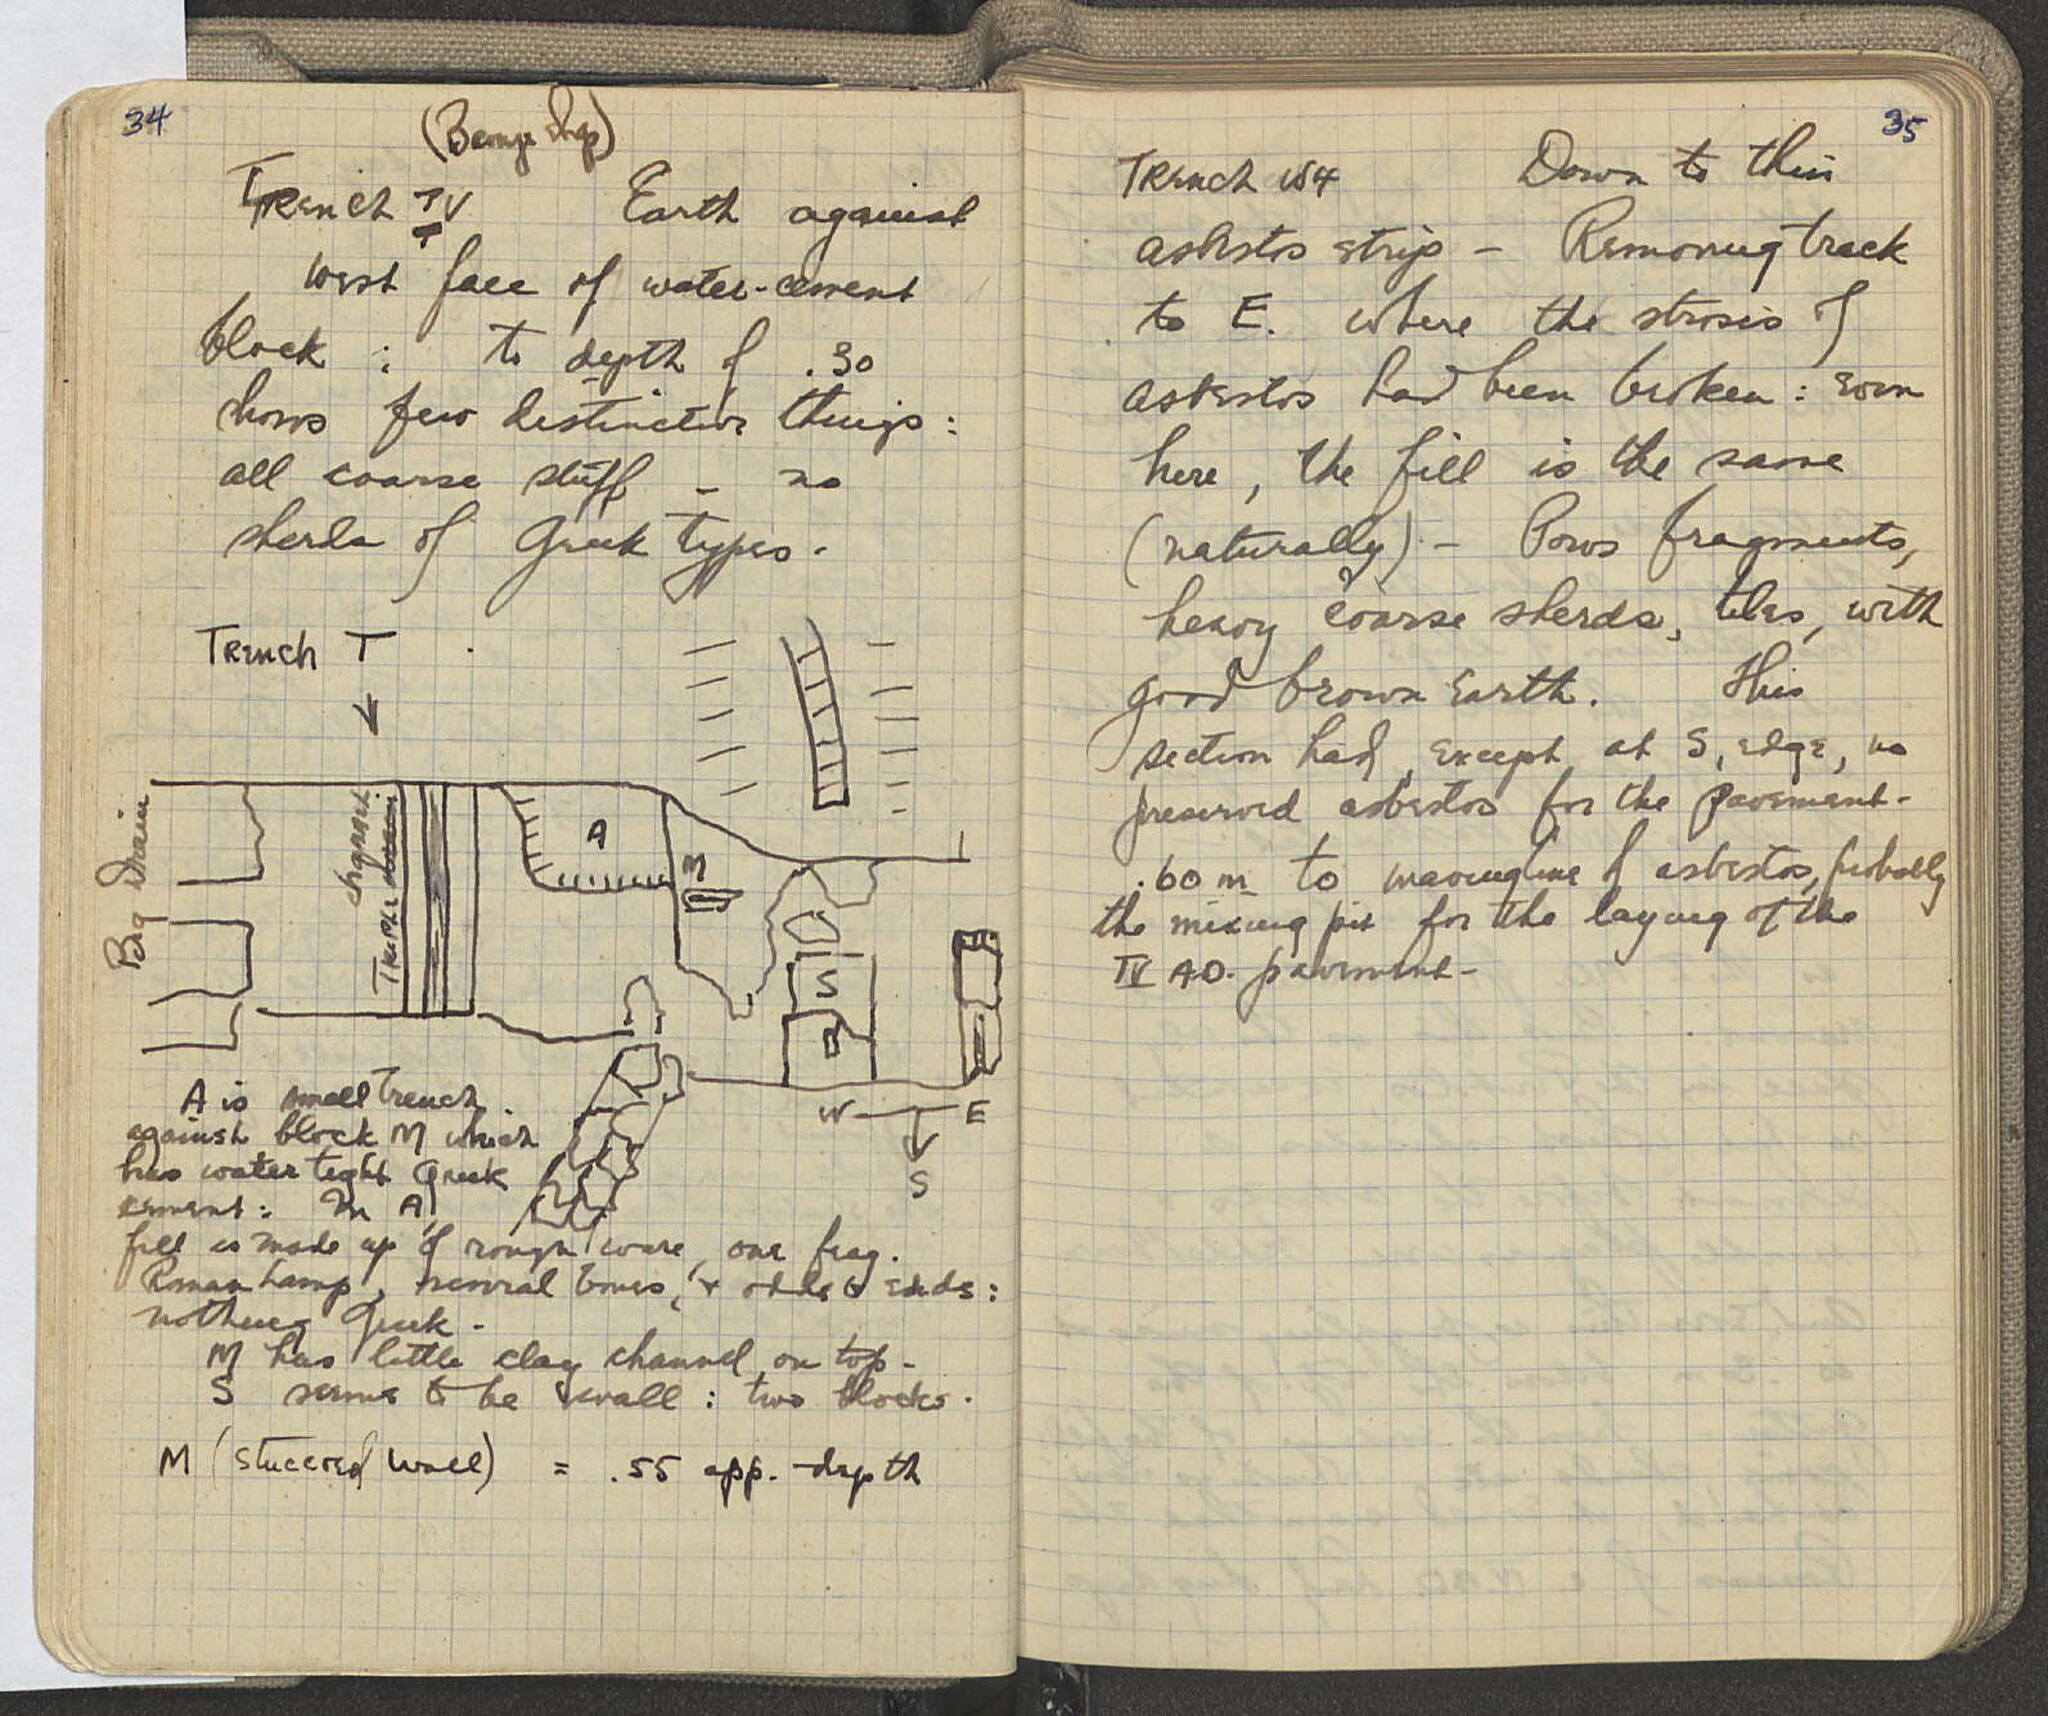 34
Trench IV
T
Earth against
west face of water-cement
block : to depth of .30
shows few distinctive things:
all coarse stuff – no
sherds of Greek types.
Trench T
Big Drain
channel
A
M
S
B
W E
S
A is small trench
against block M which
has water tight Greek
cement: In A,
fill is made up of rough ware, one frag.
Roman Lamp, several bones, & odds & ends:
nothing Greek -
M has little clay channel on top -
S seems to be wall : two blocks.
M (stuccoed wall) = .55 app. depth
35
Trench W4 Down to thin
asbestos strip – Removing track
to E. where the strosis of
asbestos had been broken : even
here, the fill is the same
(naturally) – Bows fragments,
heavy coarse sherds, tiles, with
good brown earth. This
section had, except at S, edge, no
preserved asbestos for the pavement -
.60 m to of asbestos, probably
the mixing pit for the laying of the
IV A.D. pavement -